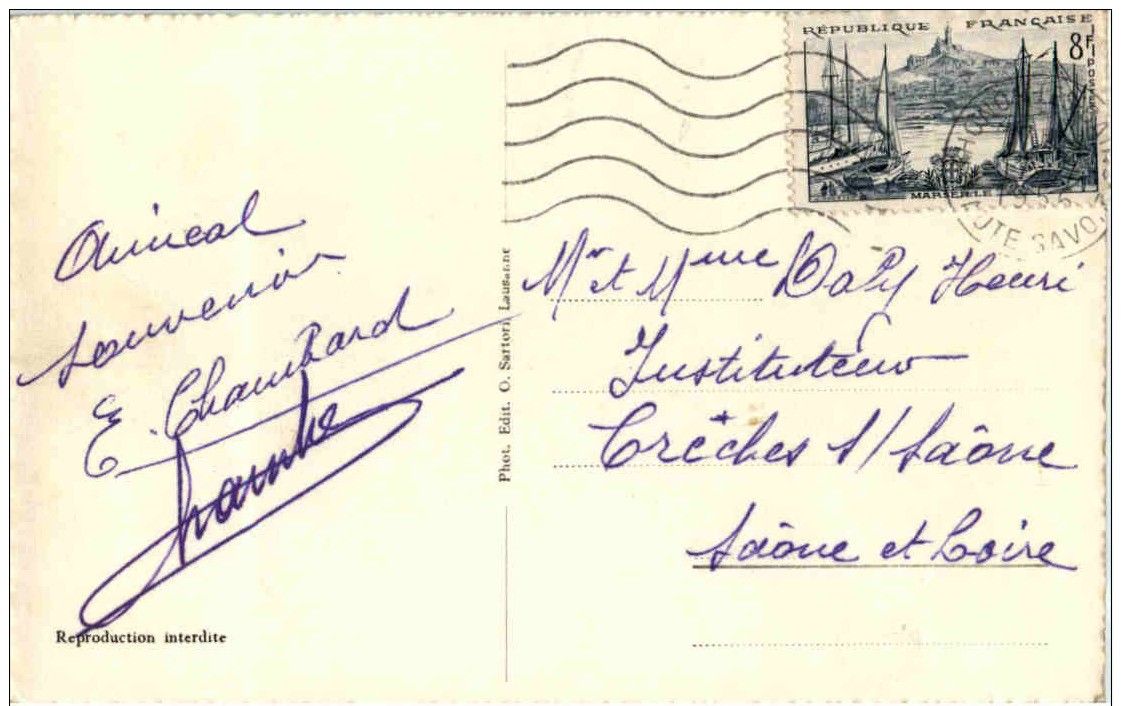 RÉPUBLIQUE FRANÇAISE
8F
POSTES
MARSEILLE
Amical
souvenir
E. Chambard
Mr et Mme Daly Henri
Instituteur
Crèches s/ Saône
Saône et Loire
Phot. Edit. O. Sartori, Lausanne
Reproduction interdite